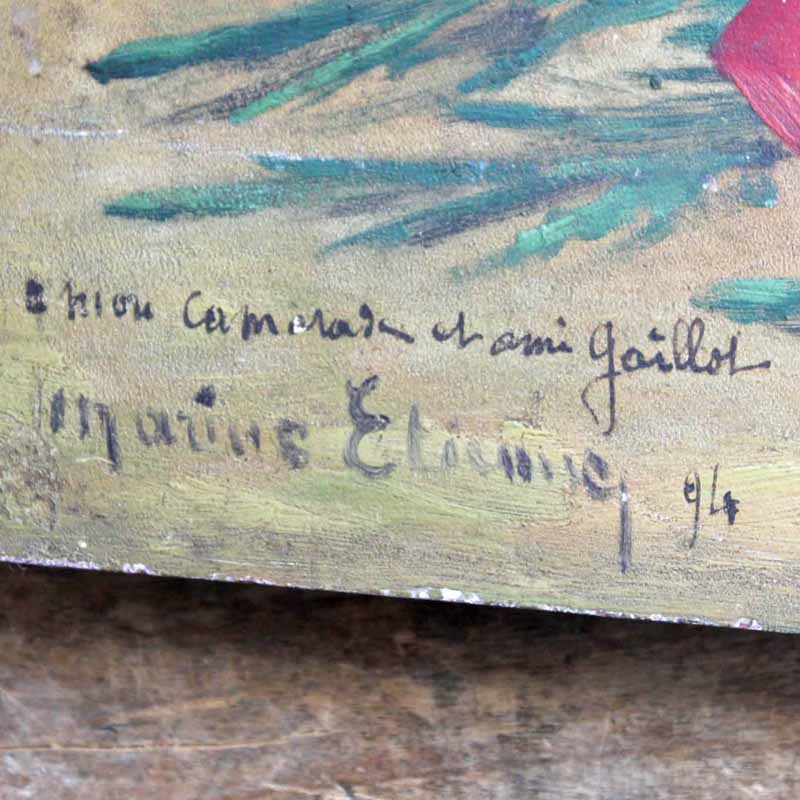 a mon camarade et ami Gaillot
Marius Etienne 94